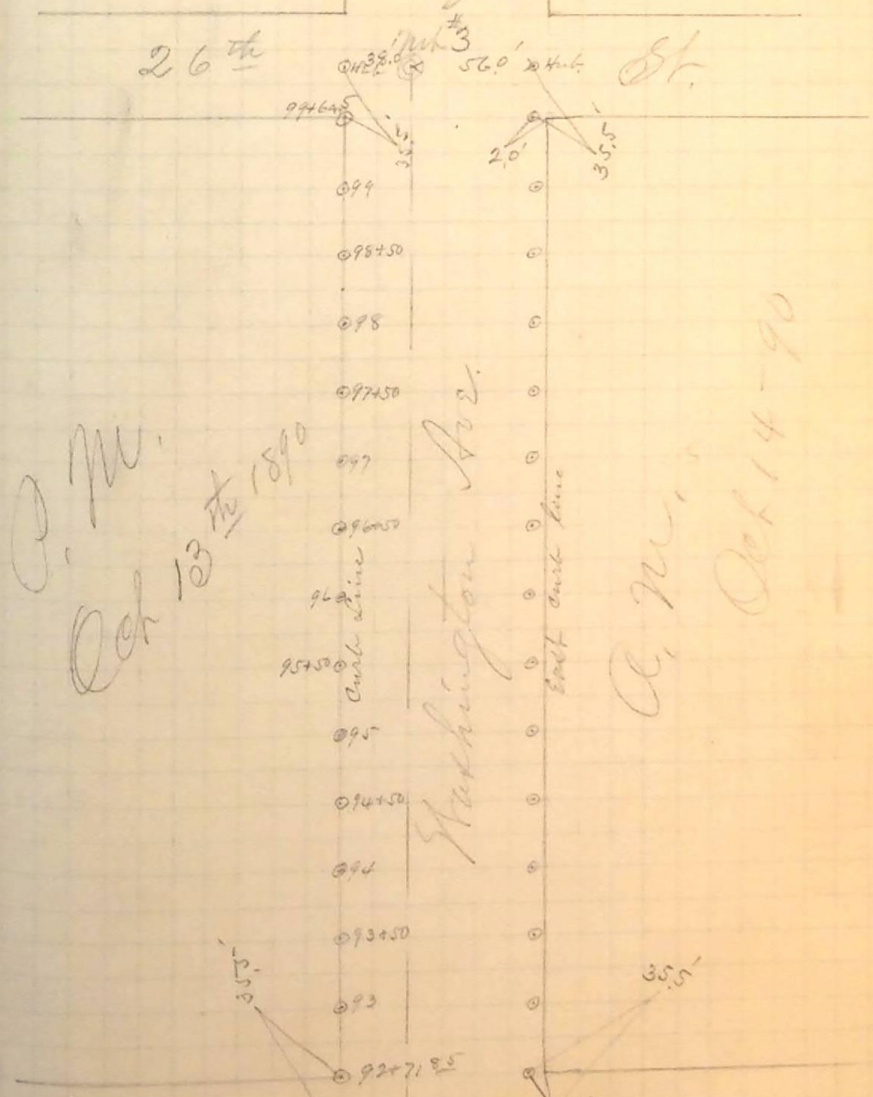 26th
Hub
38.0'
Mh #3
56.0'
Hub
St.
99+64.5
35.5'
2.0'
35.5'
99
98+50
98
97+50
97
96+50
96
95+50
95
94+50
94
93+50
93
92+71.85
Curb Line
Washington Ave.
East Curb line
P.M.
Oct 13th 1890
A.M.
Oct 14-90
35.5'
35.5'